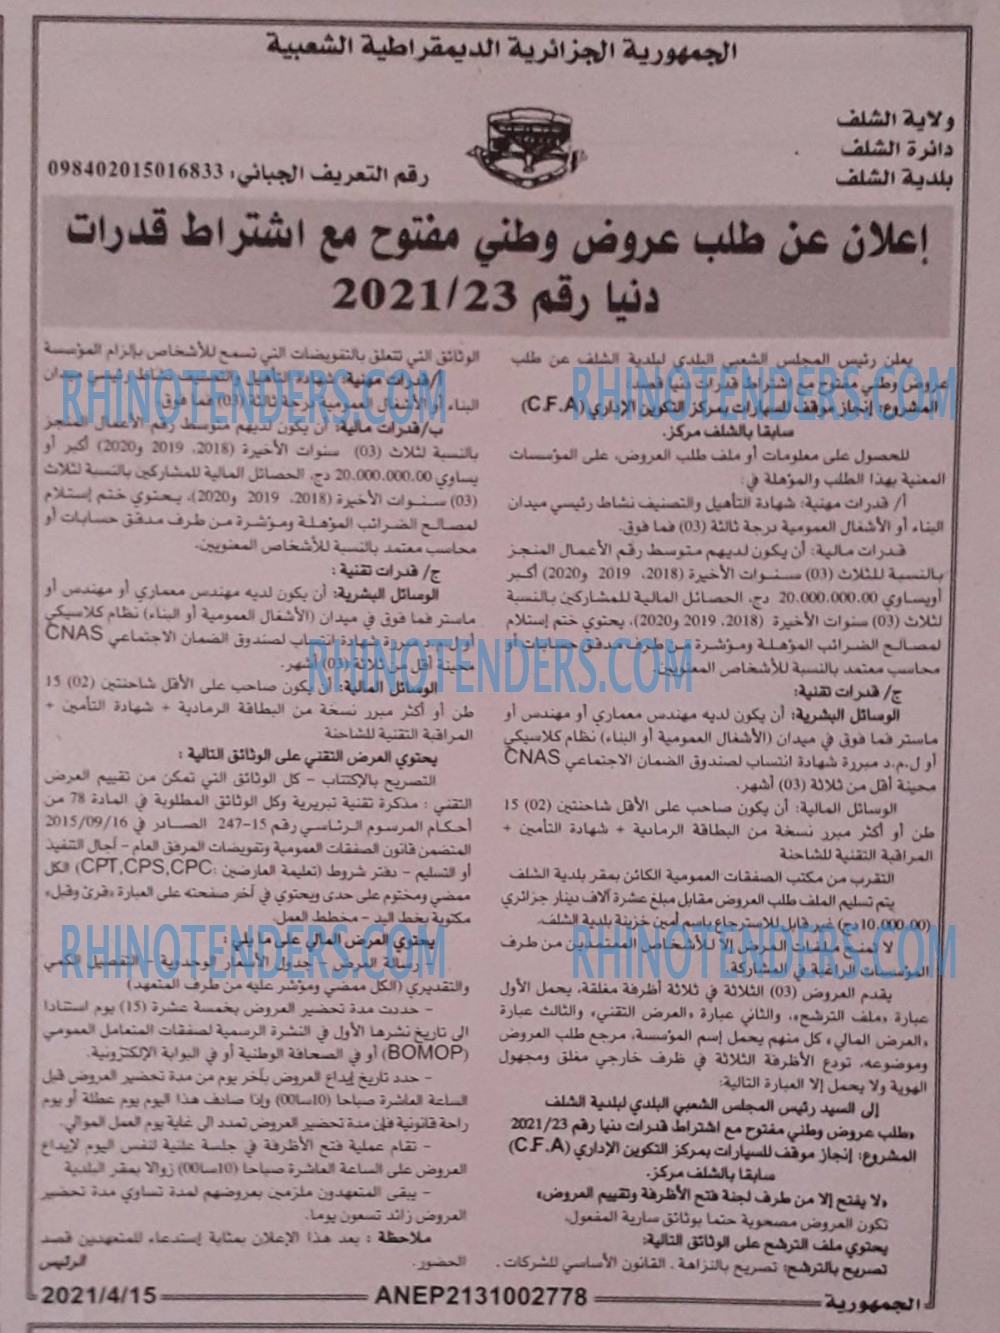 الجمهورية الجزائرية الديمقراطية الشعبية
ولاية الشلف
دائرة الشلف
بلدية الشلف
رقم التعريف الجبائي: 098402015016833
إعلان عن طلب عروض وطني مفتوح مع اشتراط قدرات
دنيا رقم 2021/23
يعلن رئيس المجلس الشعبي البلدي لبلدية الشلف عن طلب
عروض وطني مفتوح مع اشتراط قدرات دنيا قصد:
المشروع: إنجاز موقف للسيارات بمركز التكوين الإداري (C.F.A)
سابقا بالشلف مركز.
للحصول على معلومات أو ملف طلب العروض، على المؤسسات
المعنية بهذا الطلب والمؤهلة في:
أ/ قدرات مهنية: شهادة التأهيل والتصنيف نشاط رئيسي ميدان
البناء أو الأشغال العمومية درجة ثالثة (03) فما فوق.
قدرات مالية: أن يكون لديهم متوسط رقم الأعمال المنجز
بالنسبة للثلاث (03) سنوات الأخيرة (2018، 2019 و2020) أكبر
أويساوي 20.000.000.00 دج، الحصائل المالية للمشاركين بالنسبة
لثلاث (03) سنوات الأخيرة (2018، 2019 و2020)، يحتوي ختم إستلام
لمصالح الضرائب المؤهلة ومؤشرة من طرف مدقق حسابات أو
محاسب معتمد بالنسبة للأشخاص المعنويين.
ج/ قدرات تقنية:
الوسائل البشرية: أن يكون لديه مهندس معماري أو مهندس أو
ماستر فما فوق في ميدان (الأشغال العمومية أو البناء) نظام كلاسيكي
أو ل.م.د مبررة شهادة انتساب لصندوق الضمان الاجتماعي CNAS
محينة أقل من ثلاثة (03) أشهر.
الوسائل المالية: أن يكون صاحب على الأقل شاحنتين (02) 15
طن أو أكثر مبرر نسخة من البطاقة الرمادية + شهادة التأمين +
المراقبة التقنية للشاحنة
التقرب من مكتب الصفقات العمومية الكائن بمقر بلدية الشلف
يتم تسليم الملف طلب العروض مقابل مبلغ عشرة آلاف دينار جزائري
(10.000.00دج) غير قابل للاسترجاع باسم أمين خزينة بلدية الشلف.
لا تمنح ملفات العرض إلا للأشخاص المعتمدين من طرف
المؤسسات الراغبة في المشاركة.
يقدم العروض (03) الثلاثة في ثلاثة أظرفة مغلقة، يحمل الأول
عبارة «ملف الترشح»، والثاني عبارة «العرض التقني»، والثالث عبارة
«العرض المالي» كل منهم يحمل إسم المؤسسة، مرجع طلب العروض
وموضوعه، تودع الأظرفة الثلاثة في ظرف خارجي مغلق ومجهول
الهوية ولا يحمل إلا العبارة التالية:
إلى السيد رئيس المجلس الشعبي البلدي لبلدية الشلف
«طلب عروض وطني مفتوح مع اشتراط قدرات دنيا رقم 2021/23
المشروع: إنجاز موقف للسيارات بمركز التكوين الإداري (C.F.A)
سابقا بالشلف مركز.
«لا يفتح إلا من طرف لجنة فتح الأظرفة وتقييم العروض»
تكون العروض مصحوبة حتما بوثائق سارية المفعول،
يحتوي ملف الترشح على الوثائق التالية:
تصريح بالترشح: تصريح بالنزاهة . القانون الأساسي للشركات .
الوثائق التي تتعلق بالتفويضات التي تسمح للأشخاص بإلزام المؤسسة
أ/قدرات مهنية: شهادة التأهيل والتصنيف نشاط رئيسي ميدان
البناء أو الأشغال العمومية درجة ثالثة (03) فما فوق.
ب/قدرات مالية: أن يكون لديهم متوسط رقم الأعمال المنجز
بالنسبة لثلاث (03) سنوات الأخيرة (2018، 2019 و2020) أكبر أو
يساوي 20.000.000.00 دج، الحصائل المالية للمشاركين بالنسبة لثلاث
(03) سنوات الأخيرة (2018، 2019 و2020)، يحتوي ختم إستلام
لمصالح الضرائب المؤهلة ومؤشرة من طرف مدقق حسابات أو
محاسب معتمد بالنسبة للأشخاص المعنويين.
ج/ قدرات تقنية :
الوسائل البشرية: أن يكون لديه مهندس معماري أو مهندس أو
ماستر فما فوق في ميدان (الأشغال العمومية أو البناء) نظام كلاسيكي
أو ل.م.د مبررة شهادة انتساب لصندوق الضمان الاجتماعي CNAS
محينة أقل من ثلاثة (03) أشهر.
الوسائل المالية: أن يكون صاحب على الأقل شاحنتين (02) 15
طن أو أكثر مبرر نسخة من البطاقة الرمادية + شهادة التأمين +
المراقبة التقنية للشاحنة
يحتوي العرض التقني على الوثائق التالية :
التصريح بالاكتتاب - كل الوثائق التي تمكن من تقييم العرض
التقني : مذكرة تقنية تبريرية وكل الوثائق المطلوبة في المادة 78 من
أحكام المرسوم الرئاسي رقم 15-247 الصادر في 2015/09/16
المتضمن قانون الصفقات العمومية وتفويضات المرفق العام - آجال التنفيذ
أو التسليم - دفتر شروط (تعليمة العارضين :CPT,CPS,CPC) الكل
ممضي ومختوم على حدى ويحتوي في آخر صفحته على العبارة «قرئ وقبل»
مكتوبة بخط اليد - مخطط العمل.
يحتوي العرض المالي على ما يلي :
- رسالة العرض - جدول الأسعار الوحدوية - التفصيل الكمي
والتقديري (الكل ممضي ومؤشر عليه من طرف المتعهد)
- حددت مدة تحضير العروض بخمسة عشرة (15) يوم استنادا
الى تاريخ نشرها الأول في النشرة الرسمية لصفقات المتعامل العمومي
(BOMOP) أو في الصحافة الوطنية أو في البوابة الإلكترونية.
- حدد تاريخ إيداع العروض بآخر يوم من مدة تحضير العروض قبل
الساعة العاشرة صباحا (10سا00) وإذا صادف هذا اليوم يوم عطلة أو يوم
راحة قانونية فإن مدة تحضير العروض تمدد الى غاية يوم العمل الموالي.
- تقام عملية فتح الأظرفة في جلسة علنية لنفس اليوم لإيداع
العروض على الساعة العاشرة صباحا (10سا00) زوالا بمقر البلدية
- يبقى المتعهدون ملزمين بعروضهم لمدة تساوي مدة تحضير
العروض زائد تسعون يوما.
ملاحظة : يعد هذا الإعلان بمثابة إستدعاء للمتعهدين قصد
الحضور. الرئيس
الجمهورية ANEP2131002778 2021/4/15
RHINOTENDERS.COM
RHINOTENDERS.COM
RHINOTENDERS.COM
RHINOTENDERS.COM
RHINOTENDERS.COM